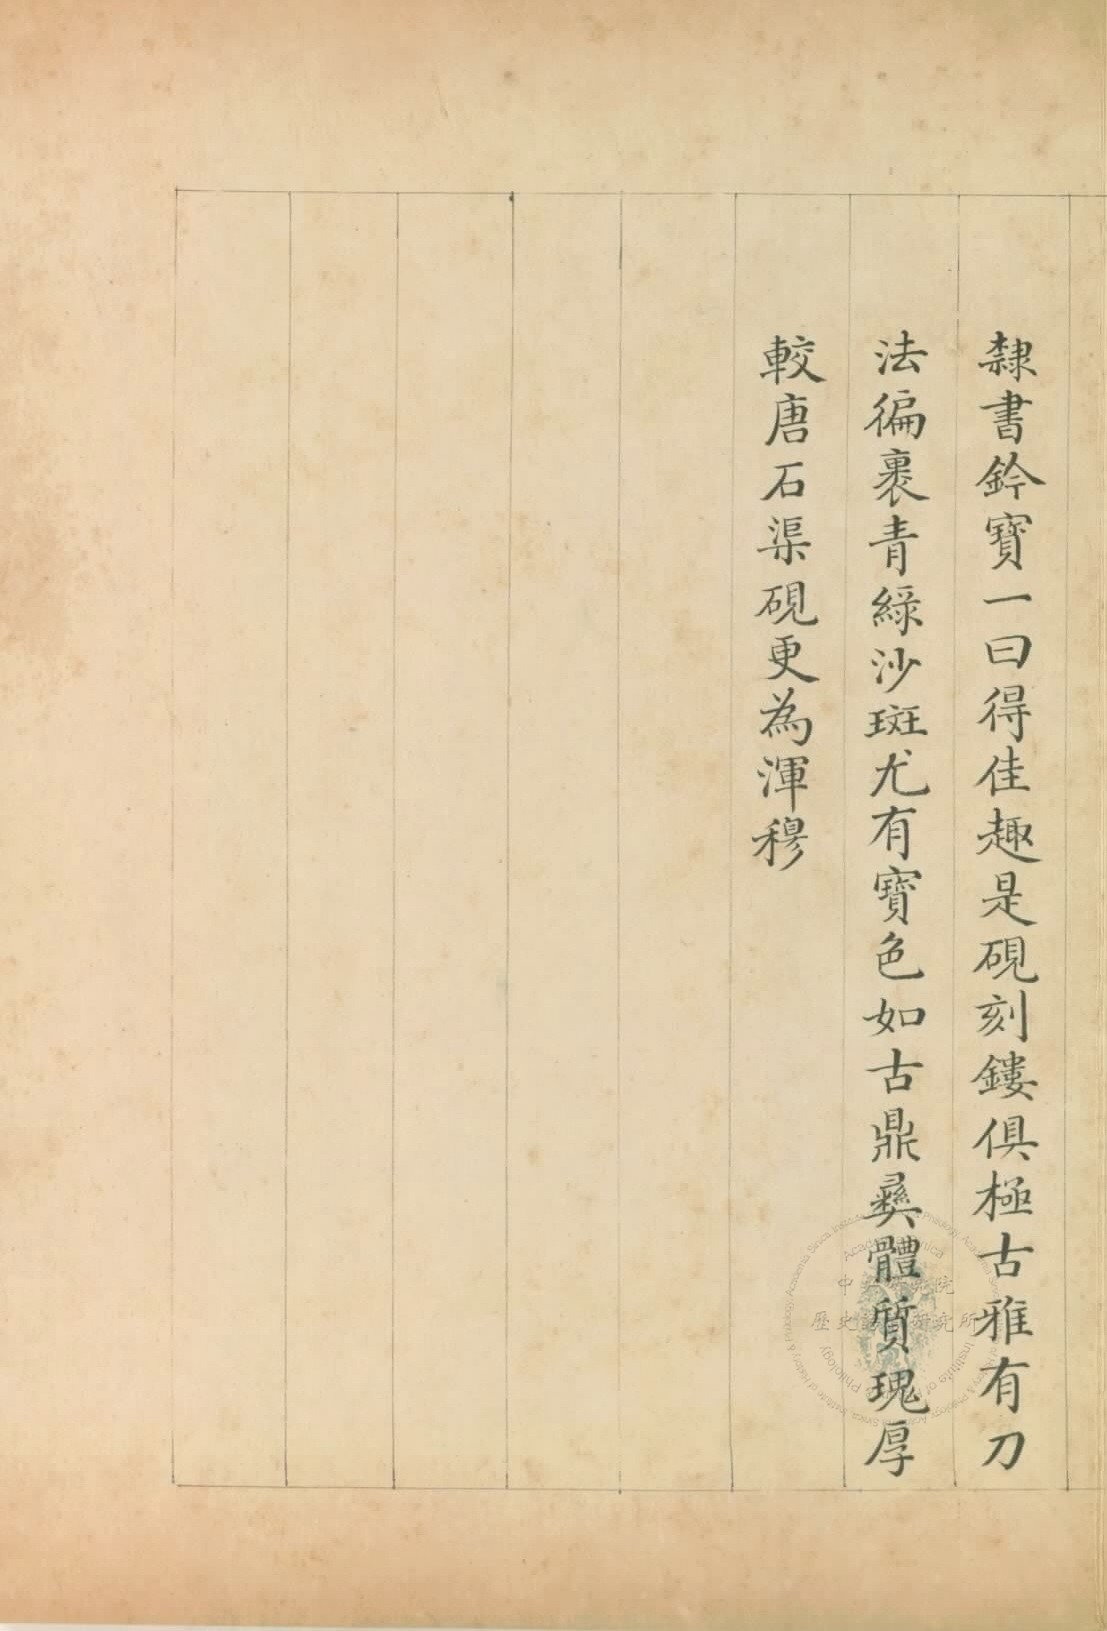 隸書鈐寶一曰得佳趣是硯刻鏤俱極古雅有刀
法徧裹青綠沙斑尤有寶色如古鼎彝體質瑰厚
較唐石渠硯更為渾穆
中央研究院
歷史語言研究所
Academia Sinica